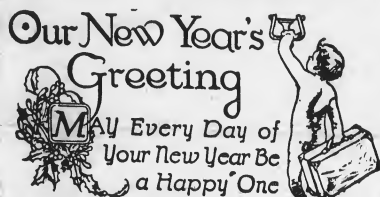 Our New Year's
Greeting
MAY Every Day of
Your New Year Be
a Happy One